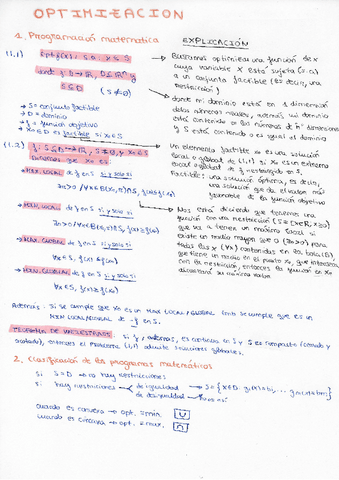 OPTIMIZACION
1. Programación matemática
EXPLICACIÓN
(1,1) Opt f(x), s.a. x ∈ S
donde f: D → ℝ, D ⊆ ℝⁿ y
S ⊆ D (S ≠ ∅)
→ S = conjunto factible
→ D = dominio
→ f = función objetivo
→ x₀ ∈ D es factible si x ∈ S
Buscamos optimizar una función de x
cuya variable x está sujeta (s.a)
a un conjunto factible (es decir, una
restricción)
donde mi dominio está en 1 dimensión
delos números reales, además mi dominio
está contenido a los números de "n" dimensiones
y S está contenido o es igual al dominio
(1,2) f: S ⊆ D → ℝ, S ≠ ∅, y x₀ ∈ S
Diremos que x₀ es:
Un elemento factible x₀ es una solución
local o global de (1,1) si x₀ es un extremo
local o global de f restringida en S.
Factible: una solución óptima, es decir,
una solución que da el valor más
favorable de la función objetivo
• MAX. LOCAL de f en S si y solo si
∃r>0 / ∀x ∈ B(x₀,r)∩S, f(x) ≤ f(x₀)
• MIN. LOCAL de f en S si y solo si
∃r>0 / ∀x ∈ B(x₀,r)∩S, f(x) ≥ f(x₀)
• MAX. GLOBAL de f en S si y solo si
∀x ∈ S, f(x) ≤ f(x₀)
• MIN. GLOBAL de f en S si y solo si
∀x ∈ S, f(x) ≥ f(x₀)
Nos está diciendo que tenemos una
función con restricción
que va a tener un máximo local si
existe un radio mayor que 0 (∃r>0) para
todas las x (∀x) contenidas en la bola (B)
que tiene un radio en el punto x₀, que intersecciona
con la restricción, entonces la función en x₀
alcanzará su máximo valor.
Además: Si se cumple que x₀ es un MAX LOCAL/GLOBAL
MIN LOCAL/GLOBAL de -f en S.
TEOREMA DE WEIERSTRASS: si f, además, es continua en S y S es compacto (cerrado y
acotado), entonces el problema (1,1) admite soluciones globales.
2. Clasificación de los programas matemáticos
si S = D → no hay restricciones
si hay restricciones de igualdad
de desigualdad
cuando es convexa → opt. = min. ∪
cuando es cóncava → opt. = max. ∩